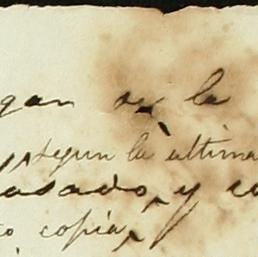 gan de la
segun la ultima
asado, y co
o copia,